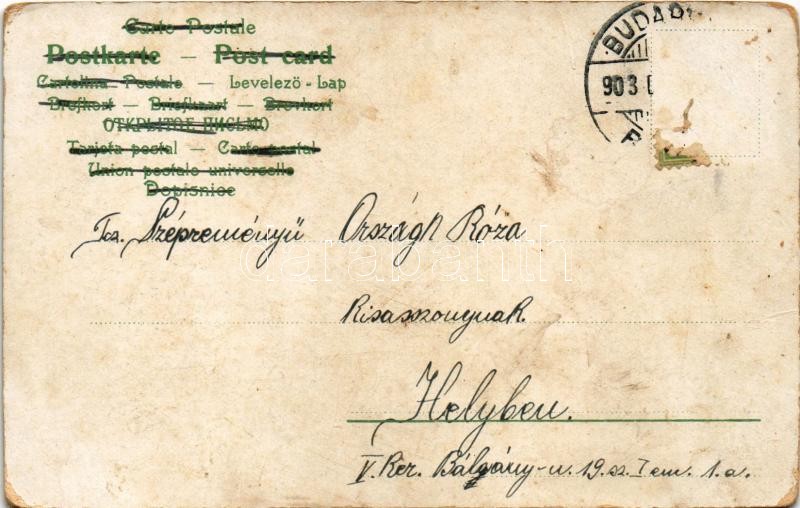 Carte Postale
Postkarte — Post card
Cartolina Postale — Levelező - Lap
Brefkort — Briefkaart — Brevkort
ОТКРЫТОЕ ПИСЬМО
Tarjeta postal — Carte postal
Union postale universelle
Dopisnice
BUDAP
903 D
Tcz. Szépreményű Országh Róza
darabanth
Kisasszonynak
Helyben.
V. Ker. Bálvány-u. 19. sz. I em. 1. a.